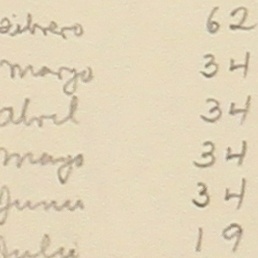 Febrero 62
Marzo 34
Abril 34
Mayo 34
Junio 34
Julio 19